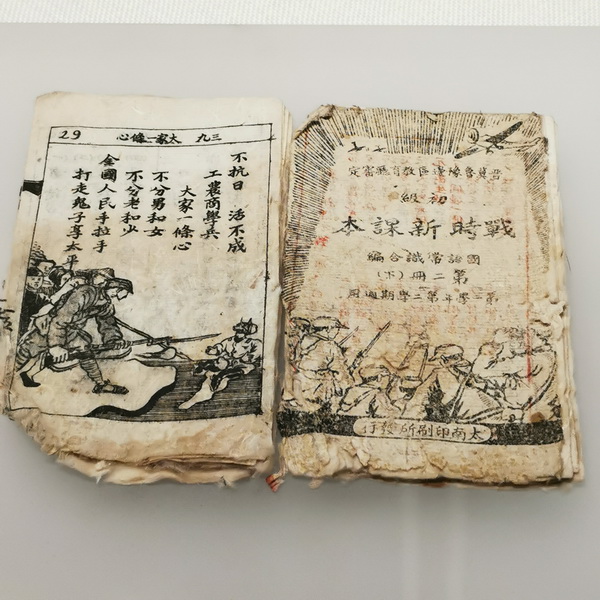 三九 大家一條心
29
不抗日 活不成
工農商學兵
大家一條心
不分男和女
不分老和少
全國人民手拉手
打走鬼子享太平
晉冀魯豫邊區教育廳審定
初級
戰時新課本
國語常識合編
第二冊(下)
第一學年第二學期適用
太南印刷所發行